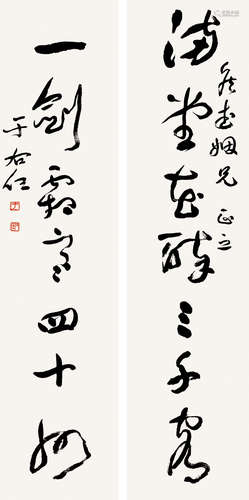 满堂花醉三千客
一剑霜寒四十州
姻兄正之
于右任